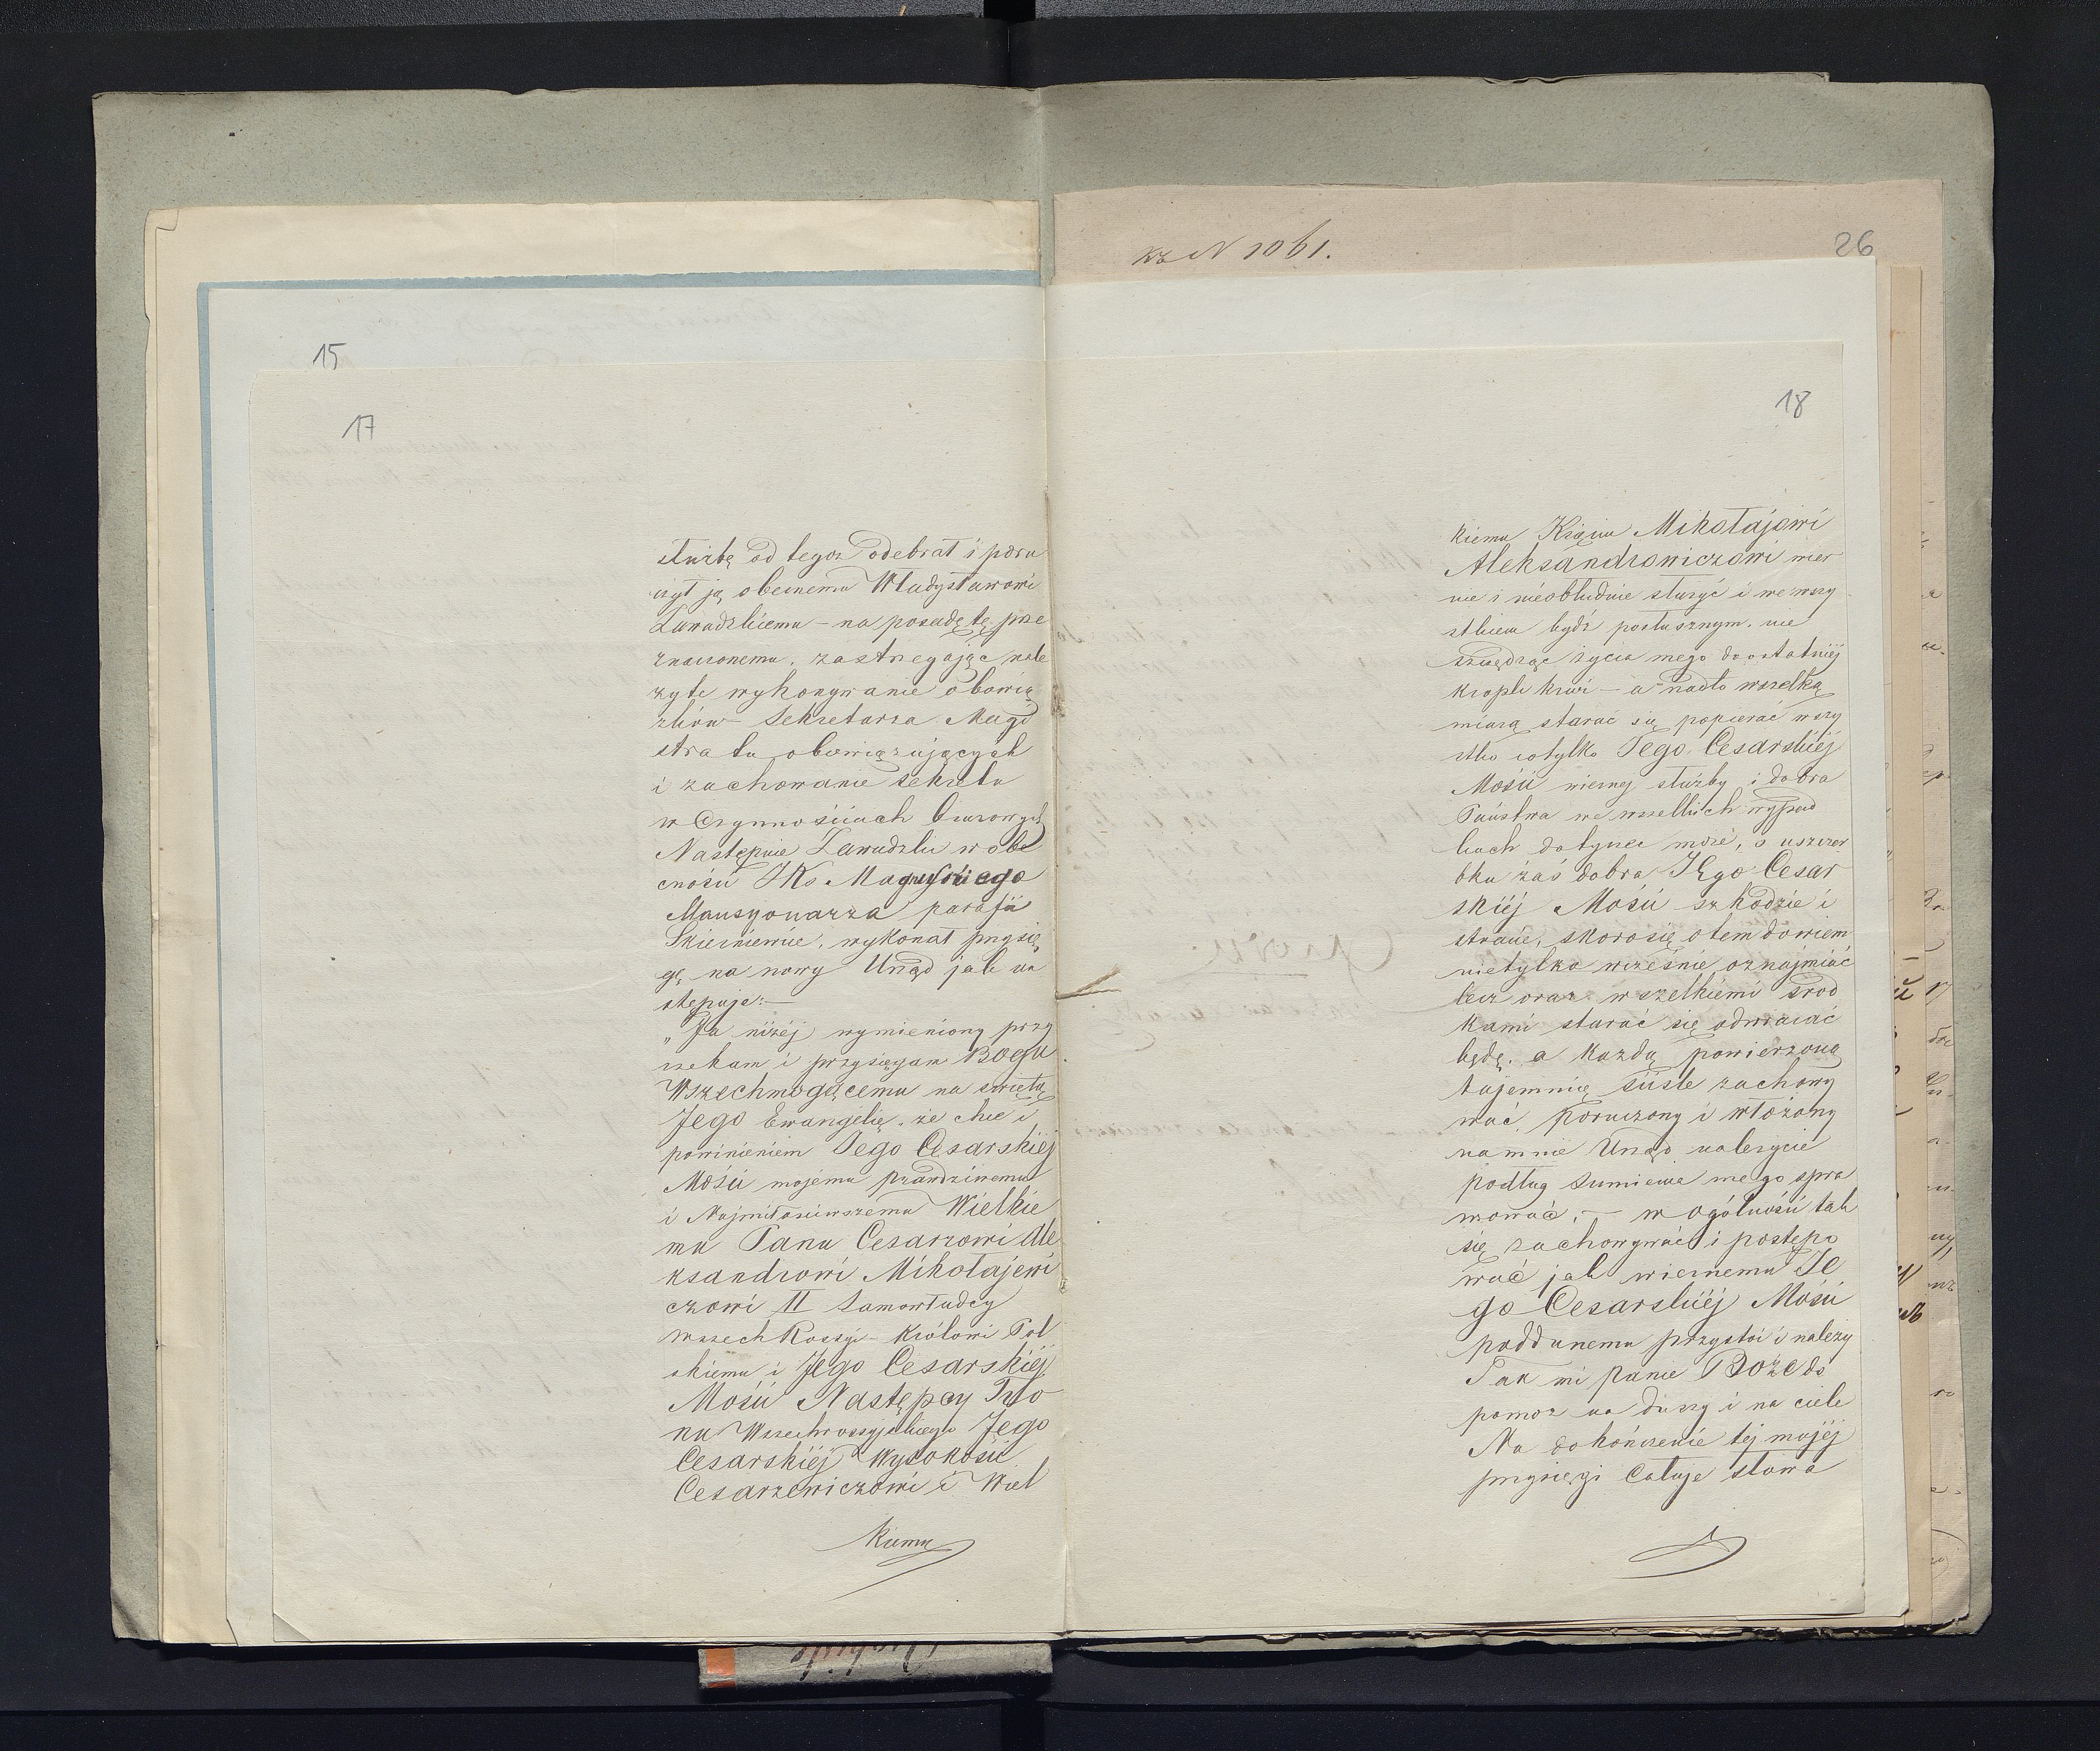 15
17
służbę od tegoż odebrał i poru
czył ją obecnemu Władysławowi
Zawadzkiemu – na posadę tę prze
znaczonemu, zastrzegając nale
żyte wykonywanie obowią
zków Sekretarza Magi
stratu obowiązujących
i zachowanie sekretu
w Czynnościach biurowych
Następnie Zawadzki w obe
cności JKs.
Mansyonarza parafii
Skierniewice, wykonał przysię
gę na nowy Urząd jak na
stępuje: –
„Ja niżéj wymieniony przy
rzekam i przysięgam Bogu
Wszechmogącemu na świętą
Jego Ewangelię, że chcę i
powinieniem Jego Cesarskiéj
Mości mojemu prawdziwemu
i Najmiłościwszemu Wielkie
mu Panu Cesarzowi Ale
ksandrowi Mikołajewi
czowi II Samowładcy
wszech Rossyi – Królowi Pol
skiemu i Jego Cesarskiéj
Mości Następcy Tro
nu Wszechrossyjskiego Jego
Cesarskiéj Wysokości
Cesarzewiczowi i Wiel
kiemu
kz N 1061.
26
18
kiemu Księciu Mikołajowi
Aleksandrowiczowi wier
nie i nieobłudnie służyć i we wszy
stkiem bydź posłusznym, nie
szczędząc życia mego do ostatniéj
kropli krwi – a nadto wszelką
miarą starać się popierać wszy
stko cotylko Jego Cesarskiéj
Mości wiernej służby i dobra
Państwa we wszelkich wypad
kach dotyczeć może, o uszczer
bku zaś dobra JEgo Cesar
skiéj Mości szkodzie i
stracie, skoro się o tem dowiem
nietylko wcześnie oznajmiać
lecz oraz wszelkiemi środ
kami starać się odwracać
będę, a każdą powierzoną
tajemnicę ściśle zachowy
wać, poruczony i włożony
na mnie Urząd należycie
podług Sumienia mego spra
wować, – w ogólności tak
się zachowywać i postępo
wać jak wiernemu Je
go Cesarskiéj Mości
poddanemu przystoi i należy
Tak mi panie Boże do
pomóż na duszy i na ciele
Na dokończenie téj mojéj
przysięgi Całuję słowa